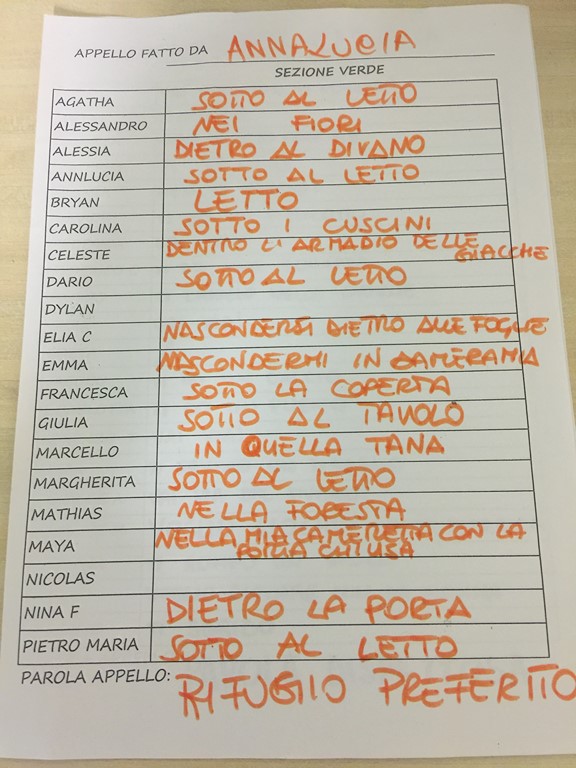 APPELLO FATTO DA ANNALUCIA
SEZIONE VERDE
AGATHA SOTTO AL LETTO
ALESSANDRO NEI FIORI
ALESSIA DIETRO AL DIVANO
ANNLUCIA SOTTO AL LETTO
BRYAN LETTO
CAROLINA SOTTO I CUSCINI
CELESTE DENTRO L'ARMADIO DELLE
GIACCHE
DARIO SOTTO AL LETTO
DYLAN
ELIA C NASCONDERSI DIETRO ALLE FOGLIE
EMMA NASCONDERMI IN CAMERA MIA
FRANCESCA SOTTO LA COPERTA
GIULIA SOTTO AL TAVOLO
MARCELLO IN QUELLA TANA
MARGHERITA SOTTO AL LETTO
MATHIAS NELLA FORESTA
MAYA NELLA MIA CAMERETTA CON LA
PORTA CHIUSA
NICOLAS
NINA F DIETRO LA PORTA
PIETRO MARIA SOTTO AL LETTO
PAROLA APPELLO: RIFUGIO PREFERITO